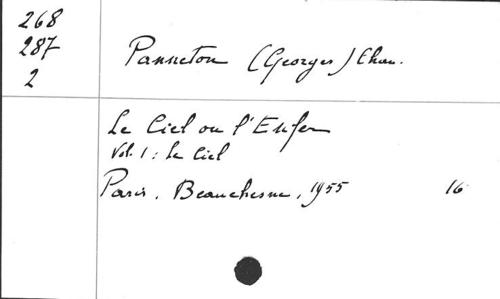 268
287
2
Panneton (Georges) Chan.
Le Ciel ou l'Enfer
Vol. 1 : Le Ciel
Paris, Beauchesne, 1955 16